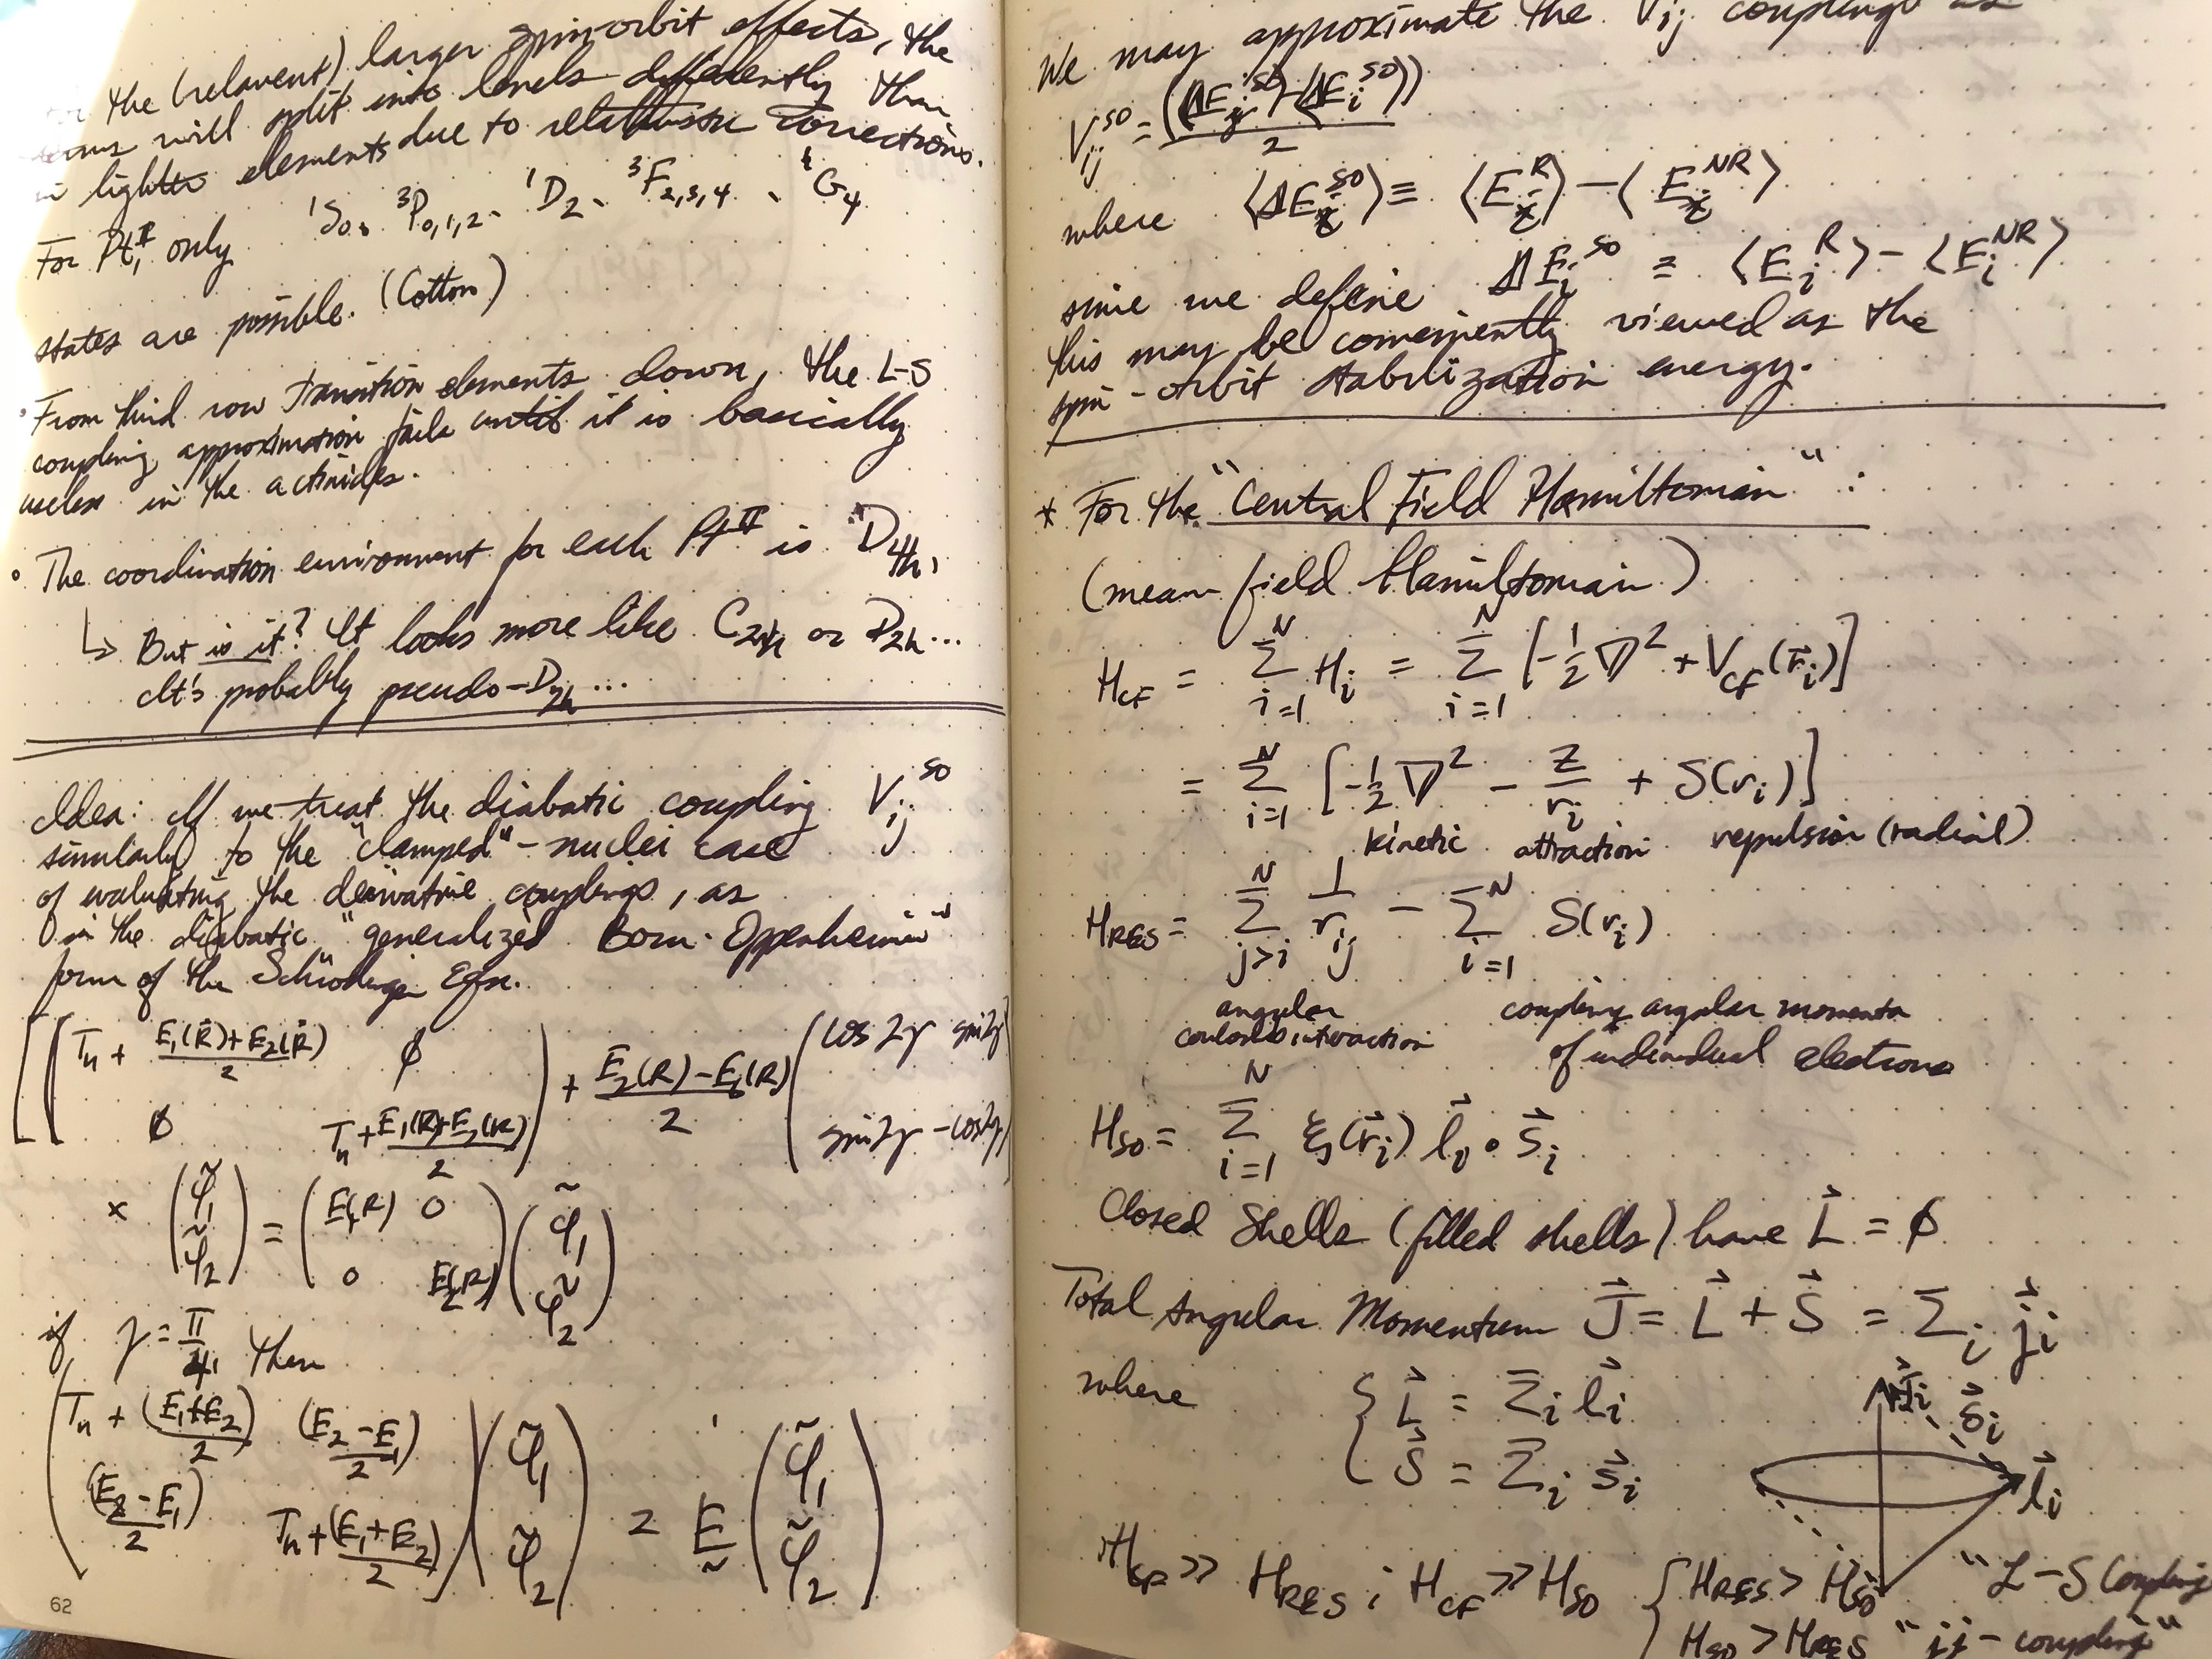 the (relavent) larger spin-orbit effects, the
will split into levels differently than
in lighter elements due to relativistic corrections.
For Pt^II, only ¹S₀, ³P₀,₁,₂, ¹D₂, ³F₂,₃,₄, ¹G₄
states are possible. (Cotton)
• From third row transition elements down, the L-S
coupling approximation fails until it is basically
useless in the actinides.
• The coordination environment for each Pt^II is "D₄h,
↳ But is it? It looks more like C₂h or D₂h...
It's probably pseudo-D₂h...
Idea: If we treat the diabatic coupling V_ij^SO
similarly to the "clamped"-nuclei case
of evaluating the derivative couplings, as
in the diabatic "generalized Born-Oppenheimer"
form of the Schrödinger Eqn.
[( T_n + (E₁(R)+E₂(R))/2   ∅
∅   T_n + (E₁(R)+E₂(R))/2 ) + (E₂(R)-E₁(R))/2 ( cos2γ sin2γ
sin2γ -cos2γ )
× (φ̃₁ φ̃₂) = ( E₁(R) 0
0 E₂(R) ) (φ̃₁ φ̃₂)
if γ = π/4, then
( T_n + (E₁+E₂)/2   (E₂-E₁)/2
(E₂-E₁)/2   T_n + (E₁+E₂)/2 ) (φ̃₁ φ̃₂) = E (φ̃₁ φ̃₂)
62
We may approximate the V_ij couplings as
V_ij^SO = (⟨ΔE_j^SO⟩-⟨ΔE_i^SO⟩)/2
where ⟨ΔE_i^SO⟩ ≡ ⟨E_i^R⟩ - ⟨E_i^NR⟩
since we define ΔE_i^SO ≡ ⟨E_i^R⟩ - ⟨E_i^NR⟩
this may be conveniently viewed as the
spin-orbit stabilization energy.
* For the "Central Field Hamiltonian":
(mean field Hamiltonian)
H_CF = Σ_{i=1}^N H_i = Σ_{i=1}^N [-½∇² + V_CF(r⃗_i)]
= Σ_{i=1}^N [-½∇² - Z/r_i + S(r_i)]
kinetic attraction repulsion (radial)
H_RES = Σ_{j>i}^N 1/r_ij - Σ_{i=1}^N S(r_i)
angular coulomb interaction
coupling angular momenta
of individual electrons
H_SO = Σ_{i=1}^N ξ(r⃗_i) l⃗_i • s⃗_i
Closed Shells (filled shells) have L⃗ = ∅
Total Angular Momentum J⃗ = L⃗ + S⃗ = Σ_i j⃗_i
where { L⃗ = Σ_i l⃗_i
S⃗ = Σ_i s⃗_i
s⃗_i
l⃗_i
H_CF >> H_RES ; H_CF >> H_SO { H_RES > H_SO "L-S Coupling
H_SO > H_RES "jj-coupling"